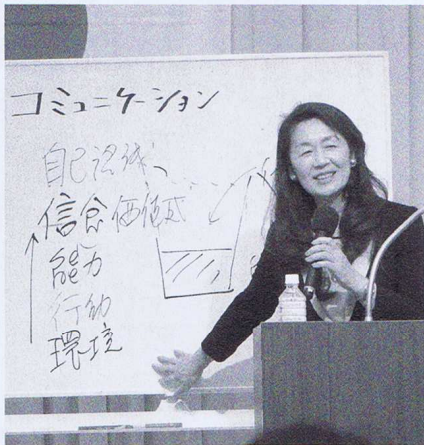 コミュニケーション
自己認識
信念 価値
能力
行動
環境